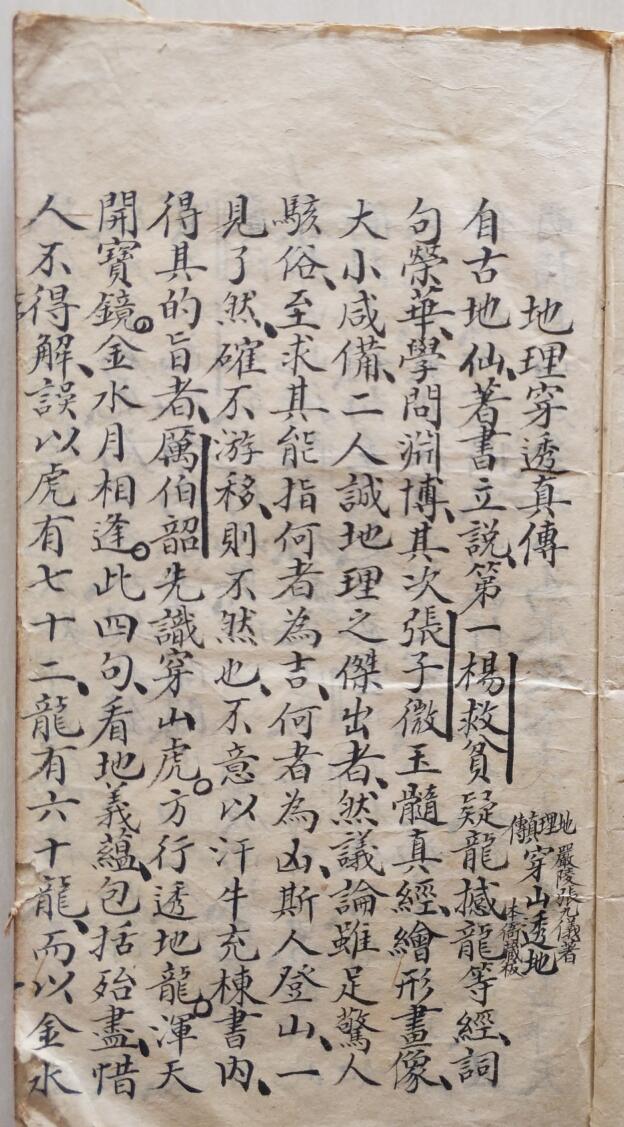 地理穿透真傳
地理眞傳
嚴陵張九儀著
穿山透地
本衙藏板
自古地仙、著書立說、第一楊救貧疑龍撼龍等經、詞
句榮華、學問淵博、其次張子微玉髓真經、繪形畫像、
大小咸備、二人誠地理之傑出者、然議論雖足驚人
駭俗、至求其能指何者為吉、何者為凶、斯人登山、一
見了然、確不游移、則不然也、不意以汗牛充棟書內、
得其的旨者、厲伯韶先識穿山虎。方行透地龍。渾天
開寶鏡。金水月相逢。此四句、看地義蘊、包括殆盡、惜
人不得解、誤以虎有七十二、龍有六十龍、而以金水